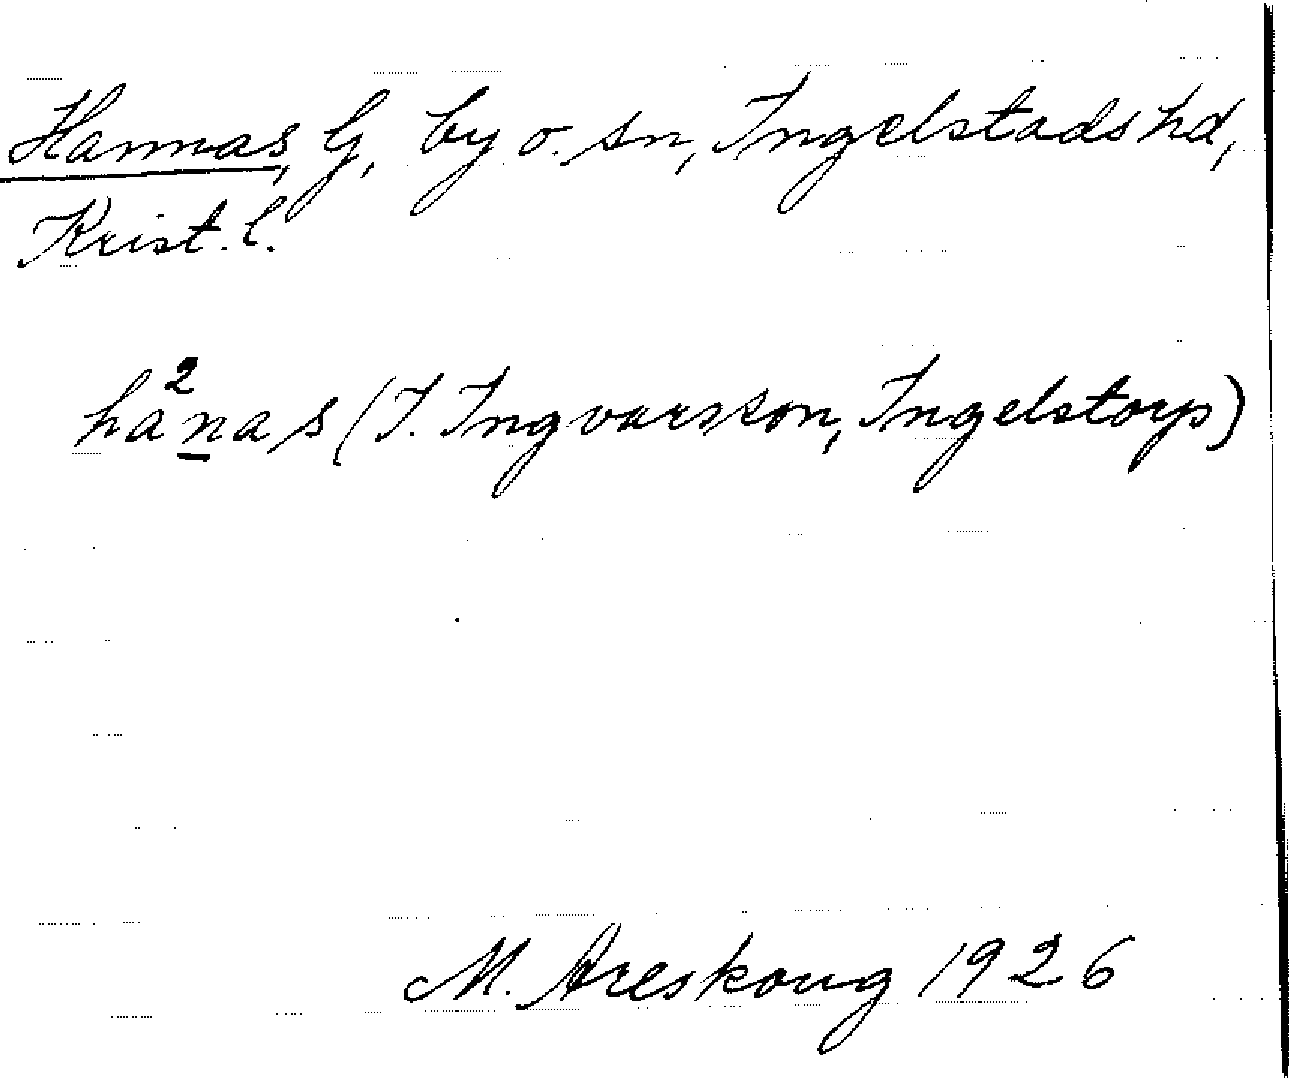 Hannas, G, by o. sn, Ingelstads hd,
Krist. l.
ha²n̲as (T. Ingvarsson, Ingelstorp)
M. Areskoug 1926